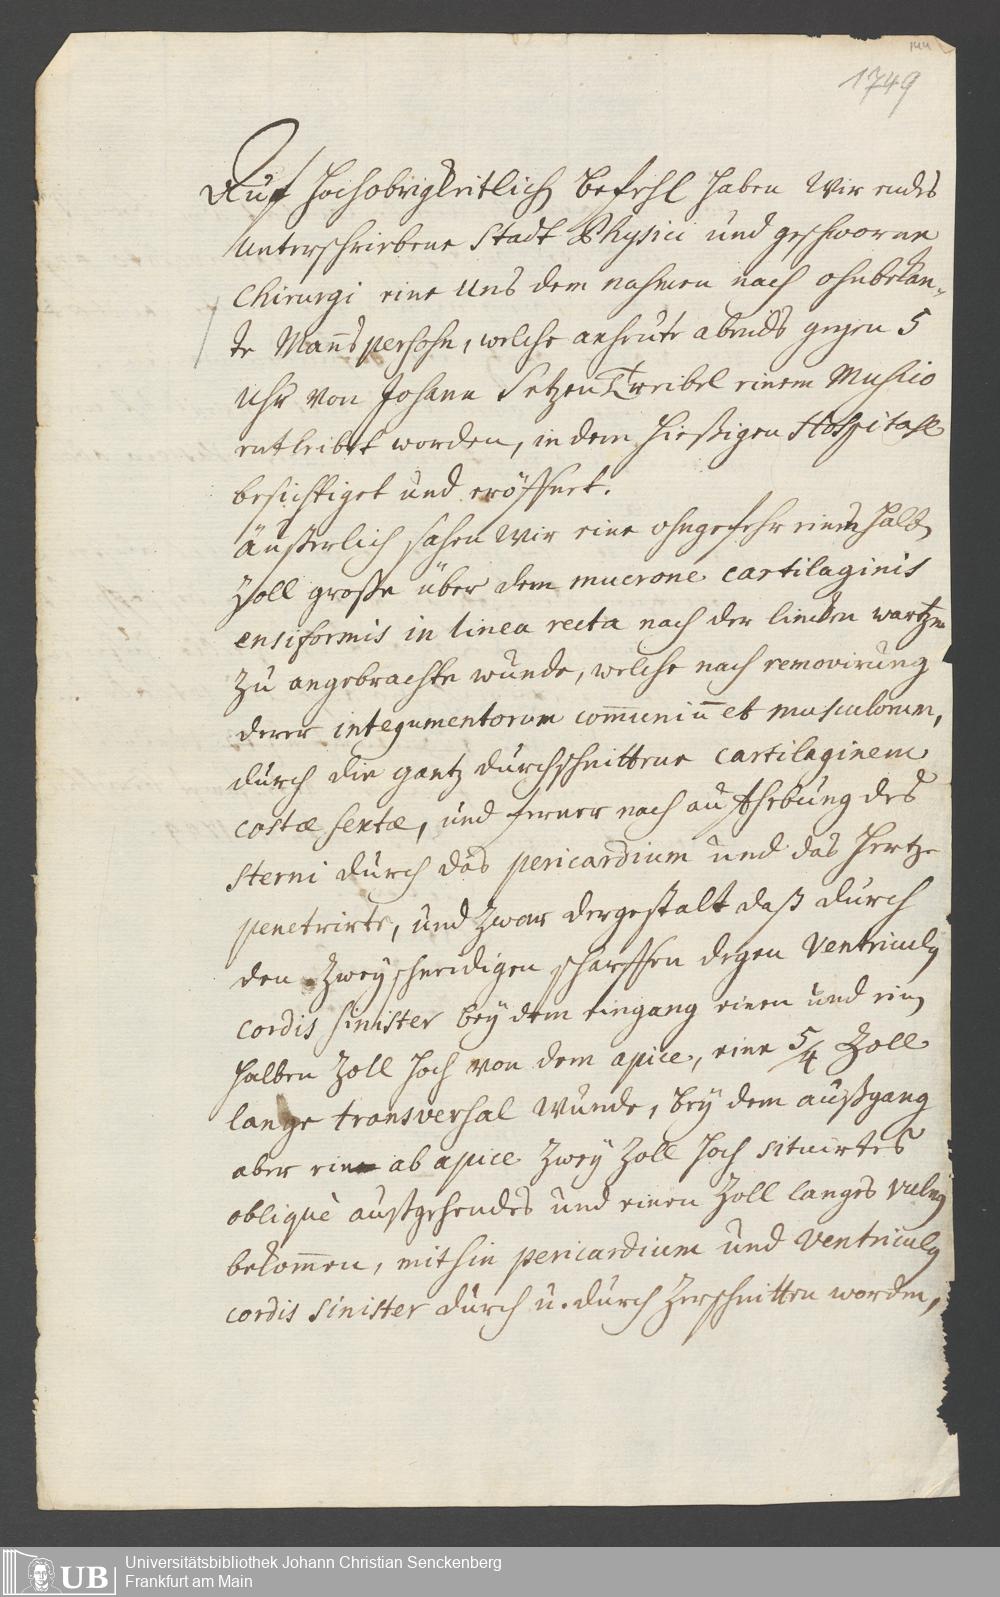 144
1749
Auf Hochobrigkeitlich Befehl haben Wir endes
Unterschriebene Stadt Physici und geschworne
Chirurgi eine Uns dem nahmen nach ohnbekan-
te Mañspersohn, welche anheute abends gegen 5
Uhr von Johann einem Musico
entleibt worden, in dem hießigen Hospitahl
besichtiget und eröffnet.
äußerlich sahen Wir eine ohngefehr einen halb
Zoll große über dem mucrone cartilaginis
ensiformis in linea recta nach der lincken wartzen
zu angebrachte wunde, welche nach removirung
derer integumentorum com̄uniū et musculorum,
durch die gantz durchschnittene cartilaginem
costæ sextæ, und ferner nach aufhebung des
Sterni durch das pericardium und das Hertze
penetrirte, und zwar dergestalt daß durch
den zweyschneidigen scharffen degen Ventriculus
cordis sinister bey dem eingang einen und ein
halben Zoll hoch von dem apice, eine 5/4 Zoll
lange transversal Wunde, bey dem außgang
aber ein ab apice zwey Zoll hoch situirtes
obliquè außgehendes und einen Zoll langes vulnus
bekom̄en, mithin pericardium und Ventriculus
cordis sinister durch u. durch zerschnitten worden,
UB
Universitätsbibliothek Johann Christian Senckenberg
Frankfurt am Main